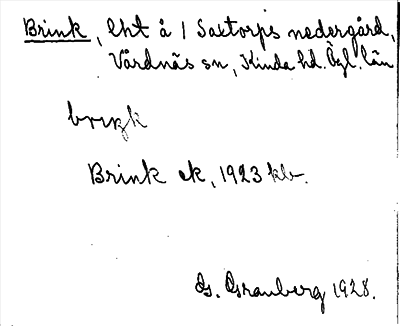 Brink, lht å 1 Saxtorps nedergård,
Vårdnäs sn, Kinda hd. Ögl. län
briŋk
Brink ek, 1923 kb.
G. Granberg 1928.